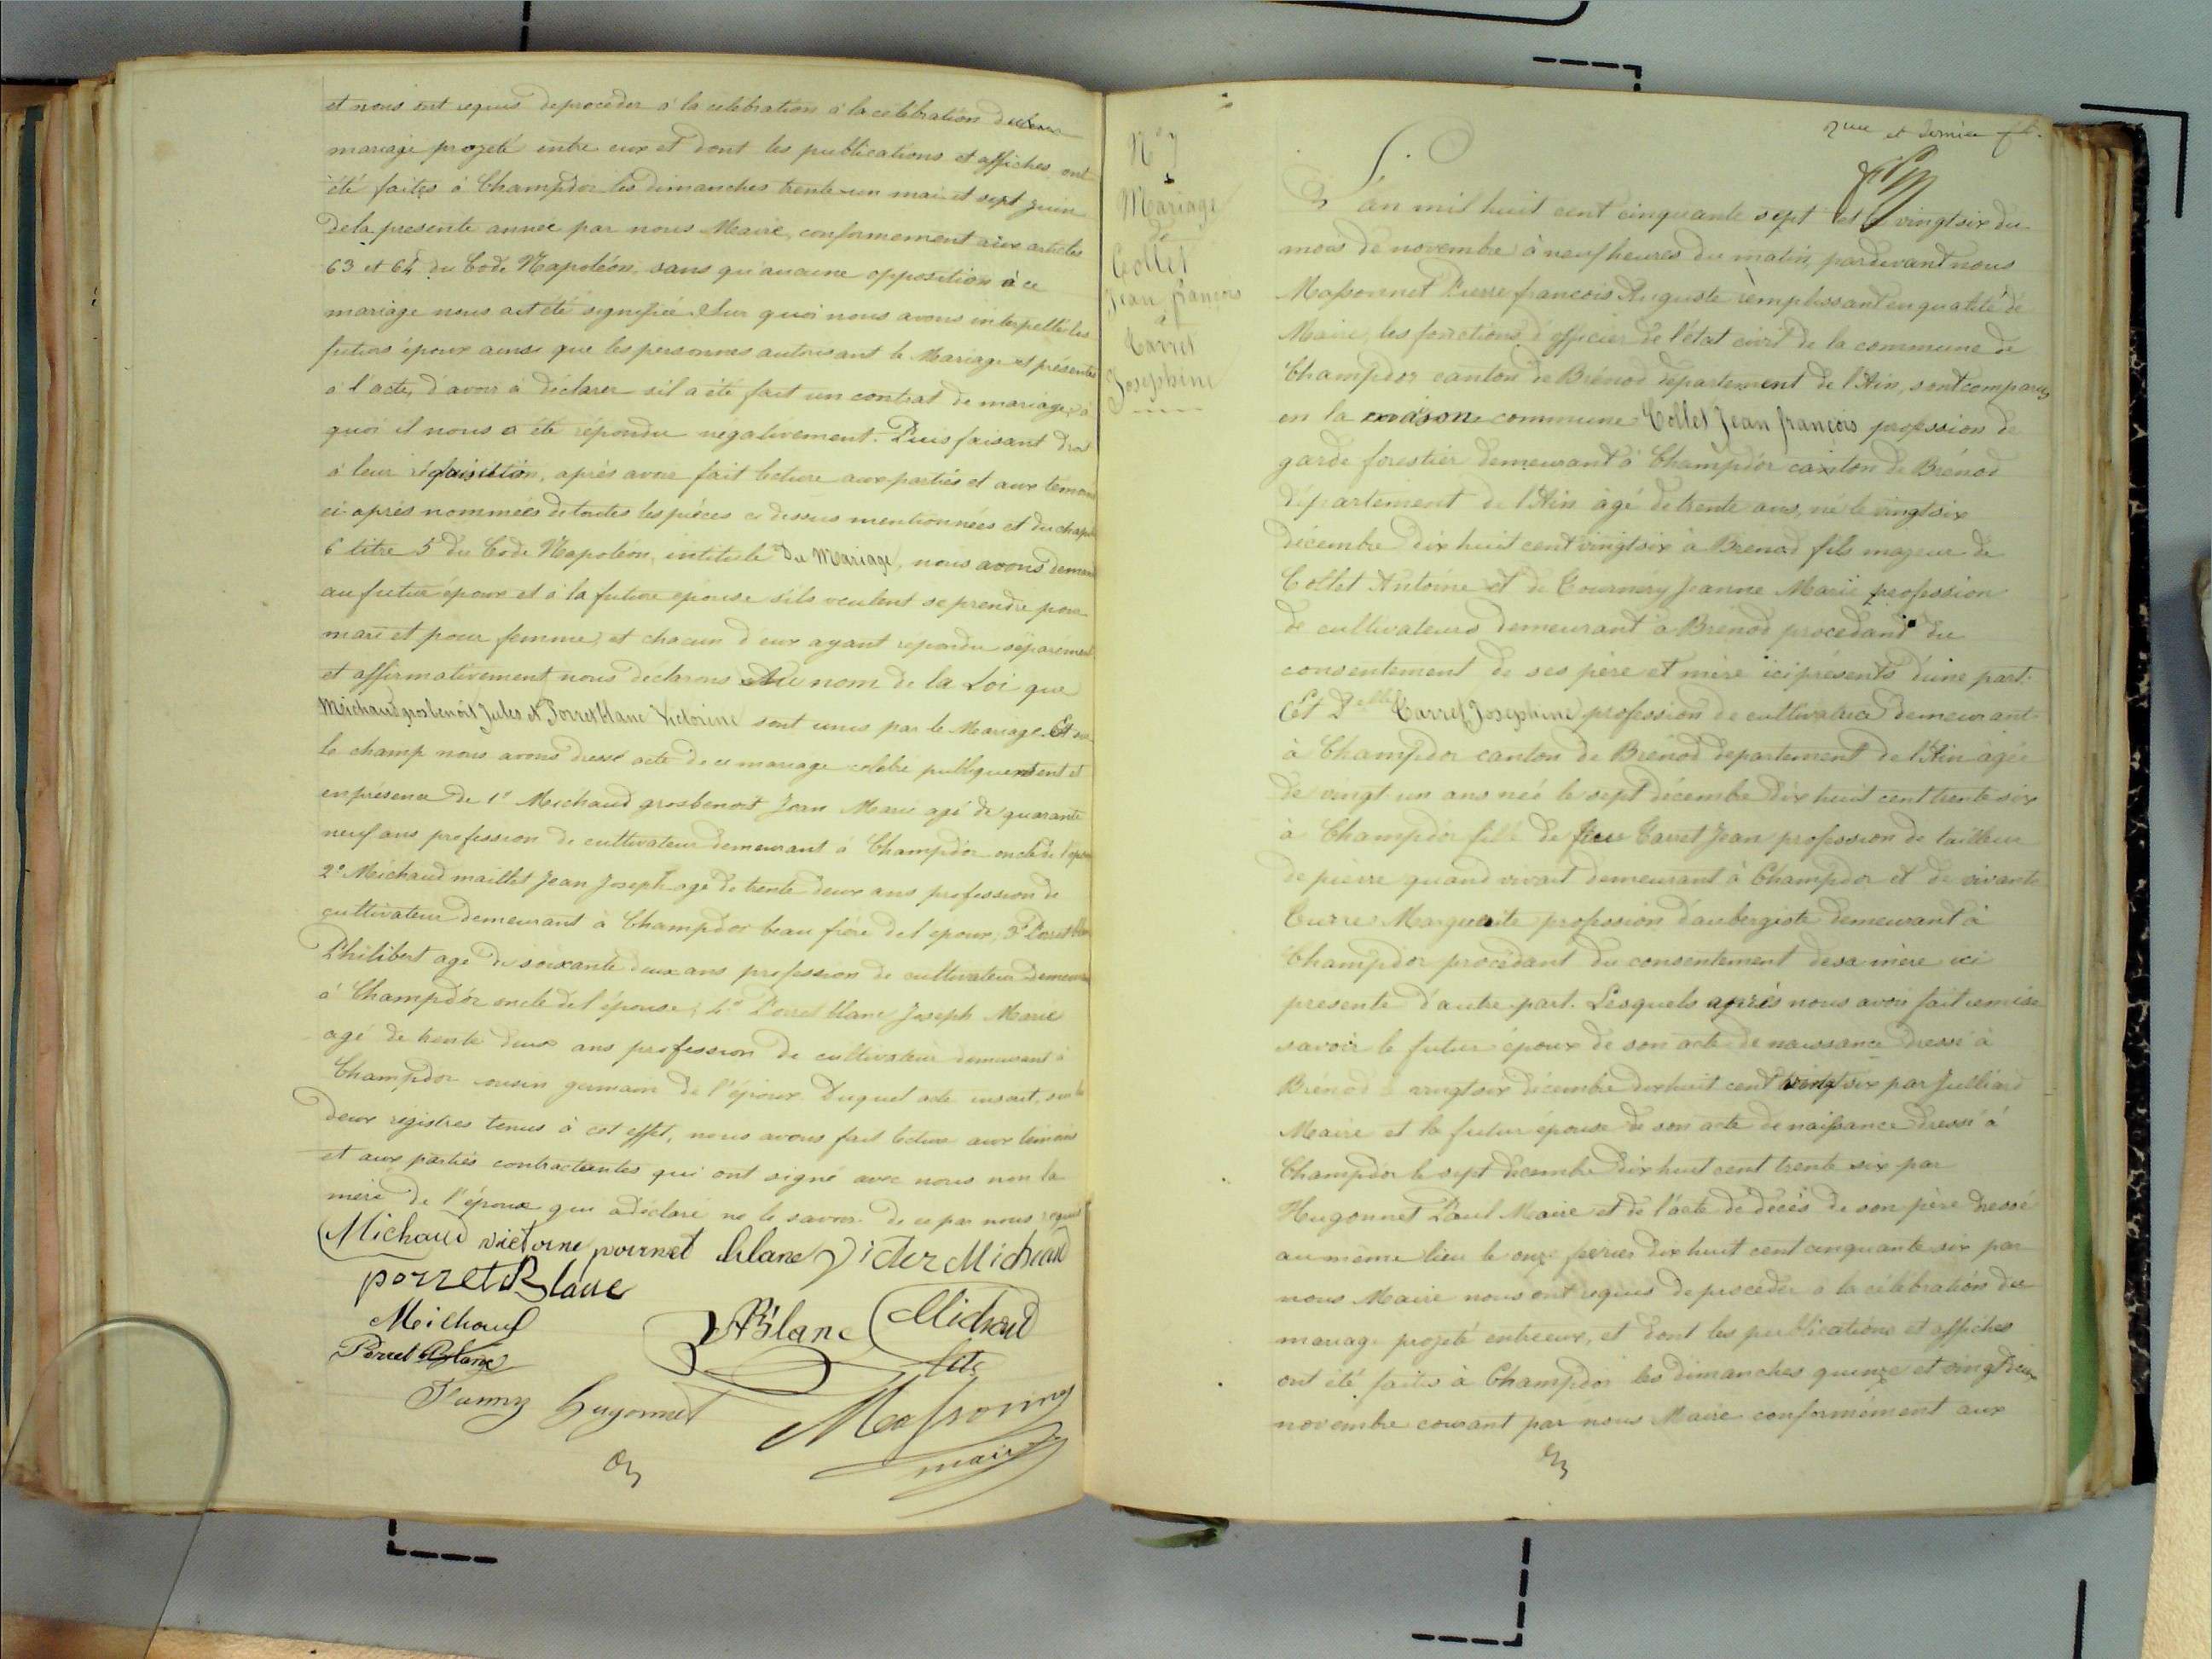 et nous ont requis de procéder à la célébration à la célébration du
mariage projeté entre eux et dont les publications et affiches ont
été faites à Champdor les dimanches trente un mai et sept juin
de la presente année par nous Maire, conformement aux articles
63 et 64 du Code Napoléon, sans qu'aucune opposition à ce
mariage nous ait été signifiée. Sur quoi nous avons interpellé les
futurs époux ainsi que les personnes autorisant le Mariage et présentes
à l'acte, d'avoir à déclarer s'il a été fait un contrat de mariage, à
quoi il nous a été répondu negativement. Puis faisant droit
à leur réquisition, après avoir fait lecture aux parties et aux témoins
ci-après nommées de toutes les pièces ci dessus mentionnées et du chapitre
6 titre 5 du Code Napoléon, intitulé Du Mariage, nous avons demandé
au futur époux et à la future épouse s'ils veulent se prendre pour
mari et pour femme, et chacun d'eux ayant repondu séparement
et affirmativement nous déclarons Au nom de la Loi que
Michaud grosbenoit Jules et Porret blanc Victorine sont unis par le Mariage. Et sur
le champ nous avons dressé acte de ce mariage célébré publiquement et
en présence de 1° Michaud grosbenoit Jean Marie agé de quarante
neuf ans profession de cultivateur demeurant à Champdor oncle de l'époux
2° Michaud maillet Jean Joseph agé de trente deux ans profession de
cultivateur demeurant à Champdor beau frére de l'époux; 3° Porret blanc
Philibert agé de soixante deux ans profession de cultivateur demeurant
à Champdor oncle de l'épouse; 4° Porret blanc Joseph Marie
agé de trente deux ans profession de cultivateur demeurant à
Champdor cousin germain de l'époux. Duquel acte inscrit, sur les
deux registres tenus à cet effet, nous avons fait lecture aux témoins
et aux parties contractantes qui ont signé avec nous non la
mère de l'époux qui a déclaré ne le savoir de ce par nous requis
Michaud victorine porret blanc Victor Michaud
porret Blanc
Michaud Blanc Michaud
Porret Blanc
Fanny hugonnet Massonnet
maire
N° 7
Mariage
de
Collet
Jean françois
et
Carret
Josephine
et dernier
L'an mil huit cent cinquante sept et le vingt six du
mois de novembre à neuf heures du matin, pardevant nous
Massonnet Pierre françois Auguste remplissant en qualité de
Maire, les fonctions d'officier de l'état civil de la commune de
Champdor canton de Brénod département de l'Ain, sont comparus
en la maison commune Collet Jean françois profession de
garde forestier demeurant à Champdor canton de Brénod
département de l'Ain âgé de trente ans, né le vingt six
décembre dix huit cent vingt six à Brenod fils majeur de
Collet Antoine et de Tournéry Jeanne Marie profession
de cultivateurs demeurant à Brénod procedant du
consentement de ses père et mère ici présents d'une part.
Et Delle Carret Josephine profession de cultivatrice demeurant
à Champdor canton de Brénod departement de l'Ain agée
de vingt un ans née le sept décembre dix huit cent trente six
à Champdor fille de feu Carret Jean profession de tailleur
de pierre quand vivait demeurant à Champdor et de vivante
Marguerite profession d'aubergiste demeurant à
Champdor procèdant du consentement de sa mère ici
presente d'autre part. Lesquels après nous avoir fait remise
savoir le futur époux de son acte de naissance dressé à
Brénod le vingt six décembre dix huit cent vingt six par Julliard
Maire et la futur épouse de son acte de naissance dressé à
Champdor le sept décembre dix huit cent trente six par
Hugonnet Paul Maire et de l'acte de décès de son père dressé
au même lieu le onze fevrier dix huit cent cinquante six par
nous Maire nous ont requis de proceder à la célébration du
mariage projeté entre eux, et dont les publications et affiches
ont été faites à Champdor les dimanches quinze et vingt deux
novembre courant par nous Maire conformément aux